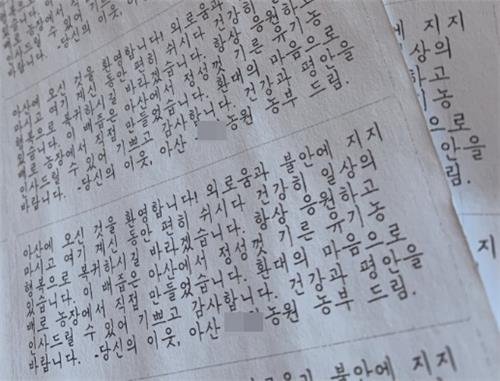 인사드릴 수 있어 기쁘
바랍니다. -당신의 이웃,
아산에 오신 것을 환영합니다! 외로움과
마시고 여기 계신 동안 편히 쉬시다 건강히
행복으로 복귀하시길 바라겠습니다. 항상 응원하
있습니다. 이 배즙은 아산에서 정성껏 기른 유기농
배로 농장에서 직접 만들었습니다. 환대의 마음으로
인사드릴 수 있어 기쁘고 감사합니다. 건강과 평안을
바랍니다. -당신의 이웃, 아산 농원 농부 드림.
지지
상의
고
농
로
을
안
림.
아산에 오신 것을 환영합니다! 외로움과 불안에 지지
마시고 여기 계신 동안 편히 쉬시다 건강히 일상의
행복으로 복귀하시길 바라겠습니다. 항상 응원하고
있습니다. 이 배즙은 아산에서 정성껏 기른 유기농
배로 농장에서 직접 만들었습니다. 환대의 마음으로
인사드릴 수 있어 기쁘고 감사합니다. 건강과 평안을
바랍니다. -당신의 이웃, 아산 농원 농부 드림.
지
불안에 지지